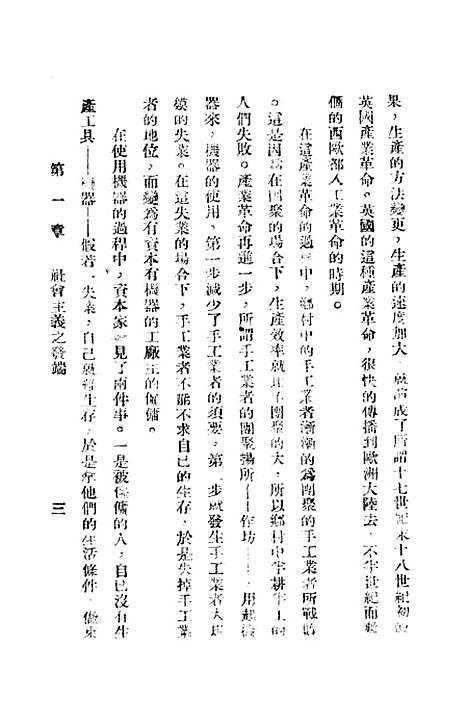 果，生產的方法變更，生產的速度加大，就造成了所謂十七世紀末十八世紀初的
英國產業革命。英國的這種產業革命，很快的傳播到歐洲大陸去，不半世紀而整
個的西歐都入工業革命的時期。
在這產業革命的過程中，鄉村中的手工業者漸漸的為團聚的手工業者所戰敗
。這是因為在團聚的場合下，生產效率就比不團聚的大，所以鄉村中半耕半工的
人們失敗。產業革命再進一步，所謂手工業者的團聚場所——作坊——，用起機
器來，機器的使用，第一步減少了手工業者的須要，第二步就發生手工業者大規
模的失業。在這失業的場合下，手工業者不能不求自己的生存，於是失掉手工業
者的地位，而變為有資本有機器的工廠主的僱傭。
在使用機器的過程中，資本家看見了兩件事。一是被僱傭的人，自己沒有生
產工具——機器——假若一失業，自己就難生存，於是牽他們的生活條件，做來
第一章 社會主義之發端 三